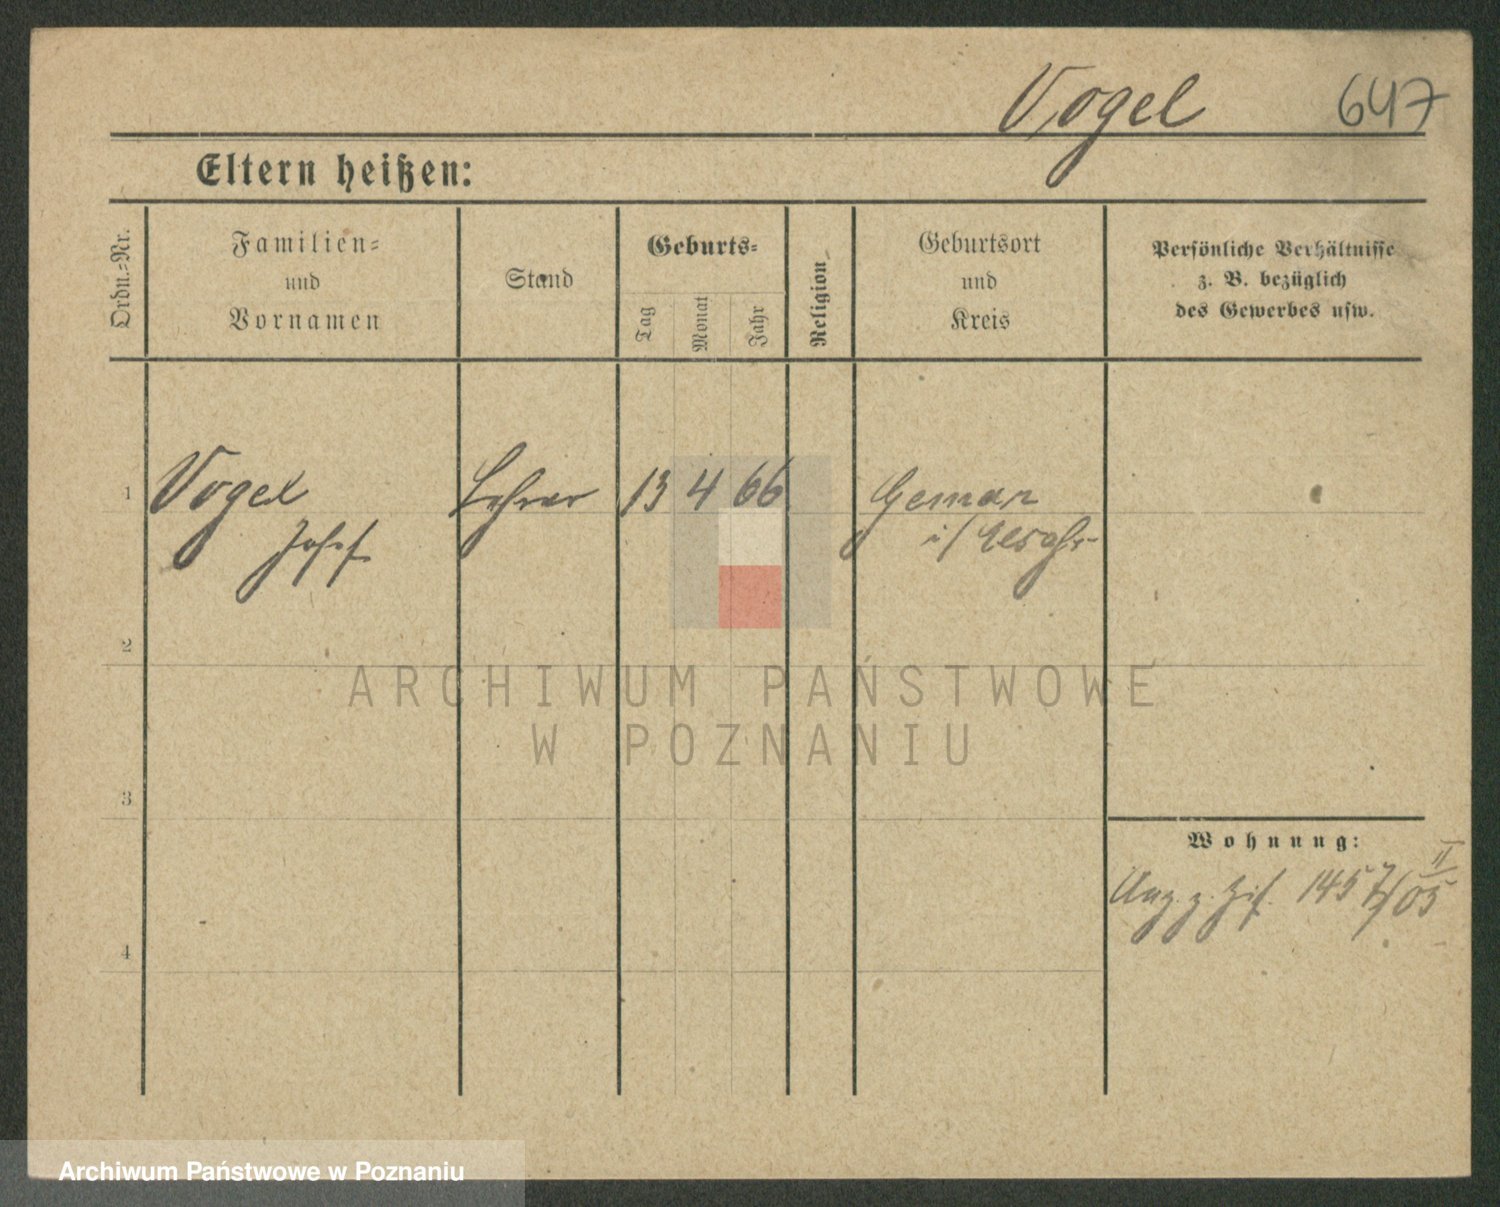 Vogel 647
Eltern heißen:
Ordn.-Nr.
Familien-
und
Vornamen
Stand
Geburts-
Tag
Monat
Jahr
Religion
Geburtsort
und
Kreis
Persönliche Verhältnisse
z. B. bezüglich
des Gewerbes usw.
1 Vogel Lehrer 13 4 66 Gemar
Josef i/Elsaß
2
ARCHIWUM PAŃSTWOWE
W POZNANIU
3
Wohnung:
II
1457/05
4
Archiwum Państwowe w Poznaniu